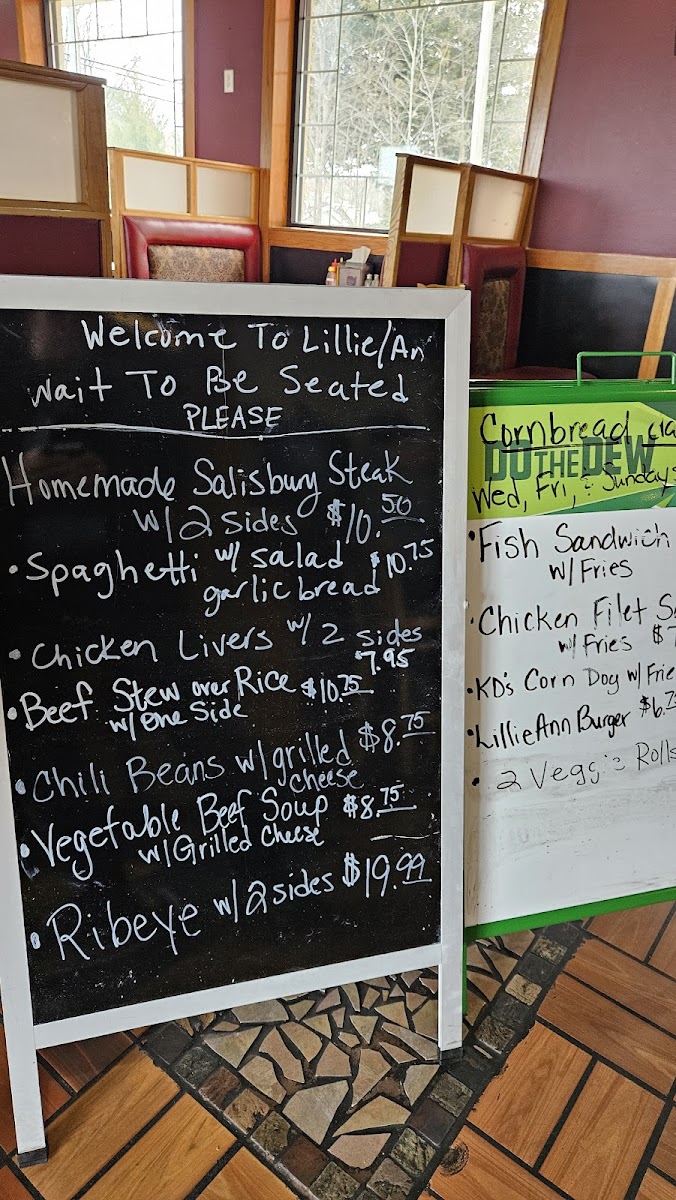 Welcome To Lillie/An
Wait To Be Seated
PLEASE
Homemade Salisbury Steak
w/2 sides $10.50
• Spaghetti w/ salad $10.75
garlic bread
• Chicken Livers w/ 2 sides
7.95
• Beef Stew over Rice $10.75
w/one Side
• Chili Beans w/grilled $8.75
cheese
• Vegetable Beef Soup $8.75
w/Grilled Cheese
• Ribeye w/2 sides $19.99
Cornbread
DO THE DEW
Wed, Fri, & Sundays
• Fish Sandwich
w/Fries
• Chicken Filet S
w/Fries $7
• KD's Corn Dog w/ Frie
• LillieAnn Burger $6.75
• 2 Veggie Rolls